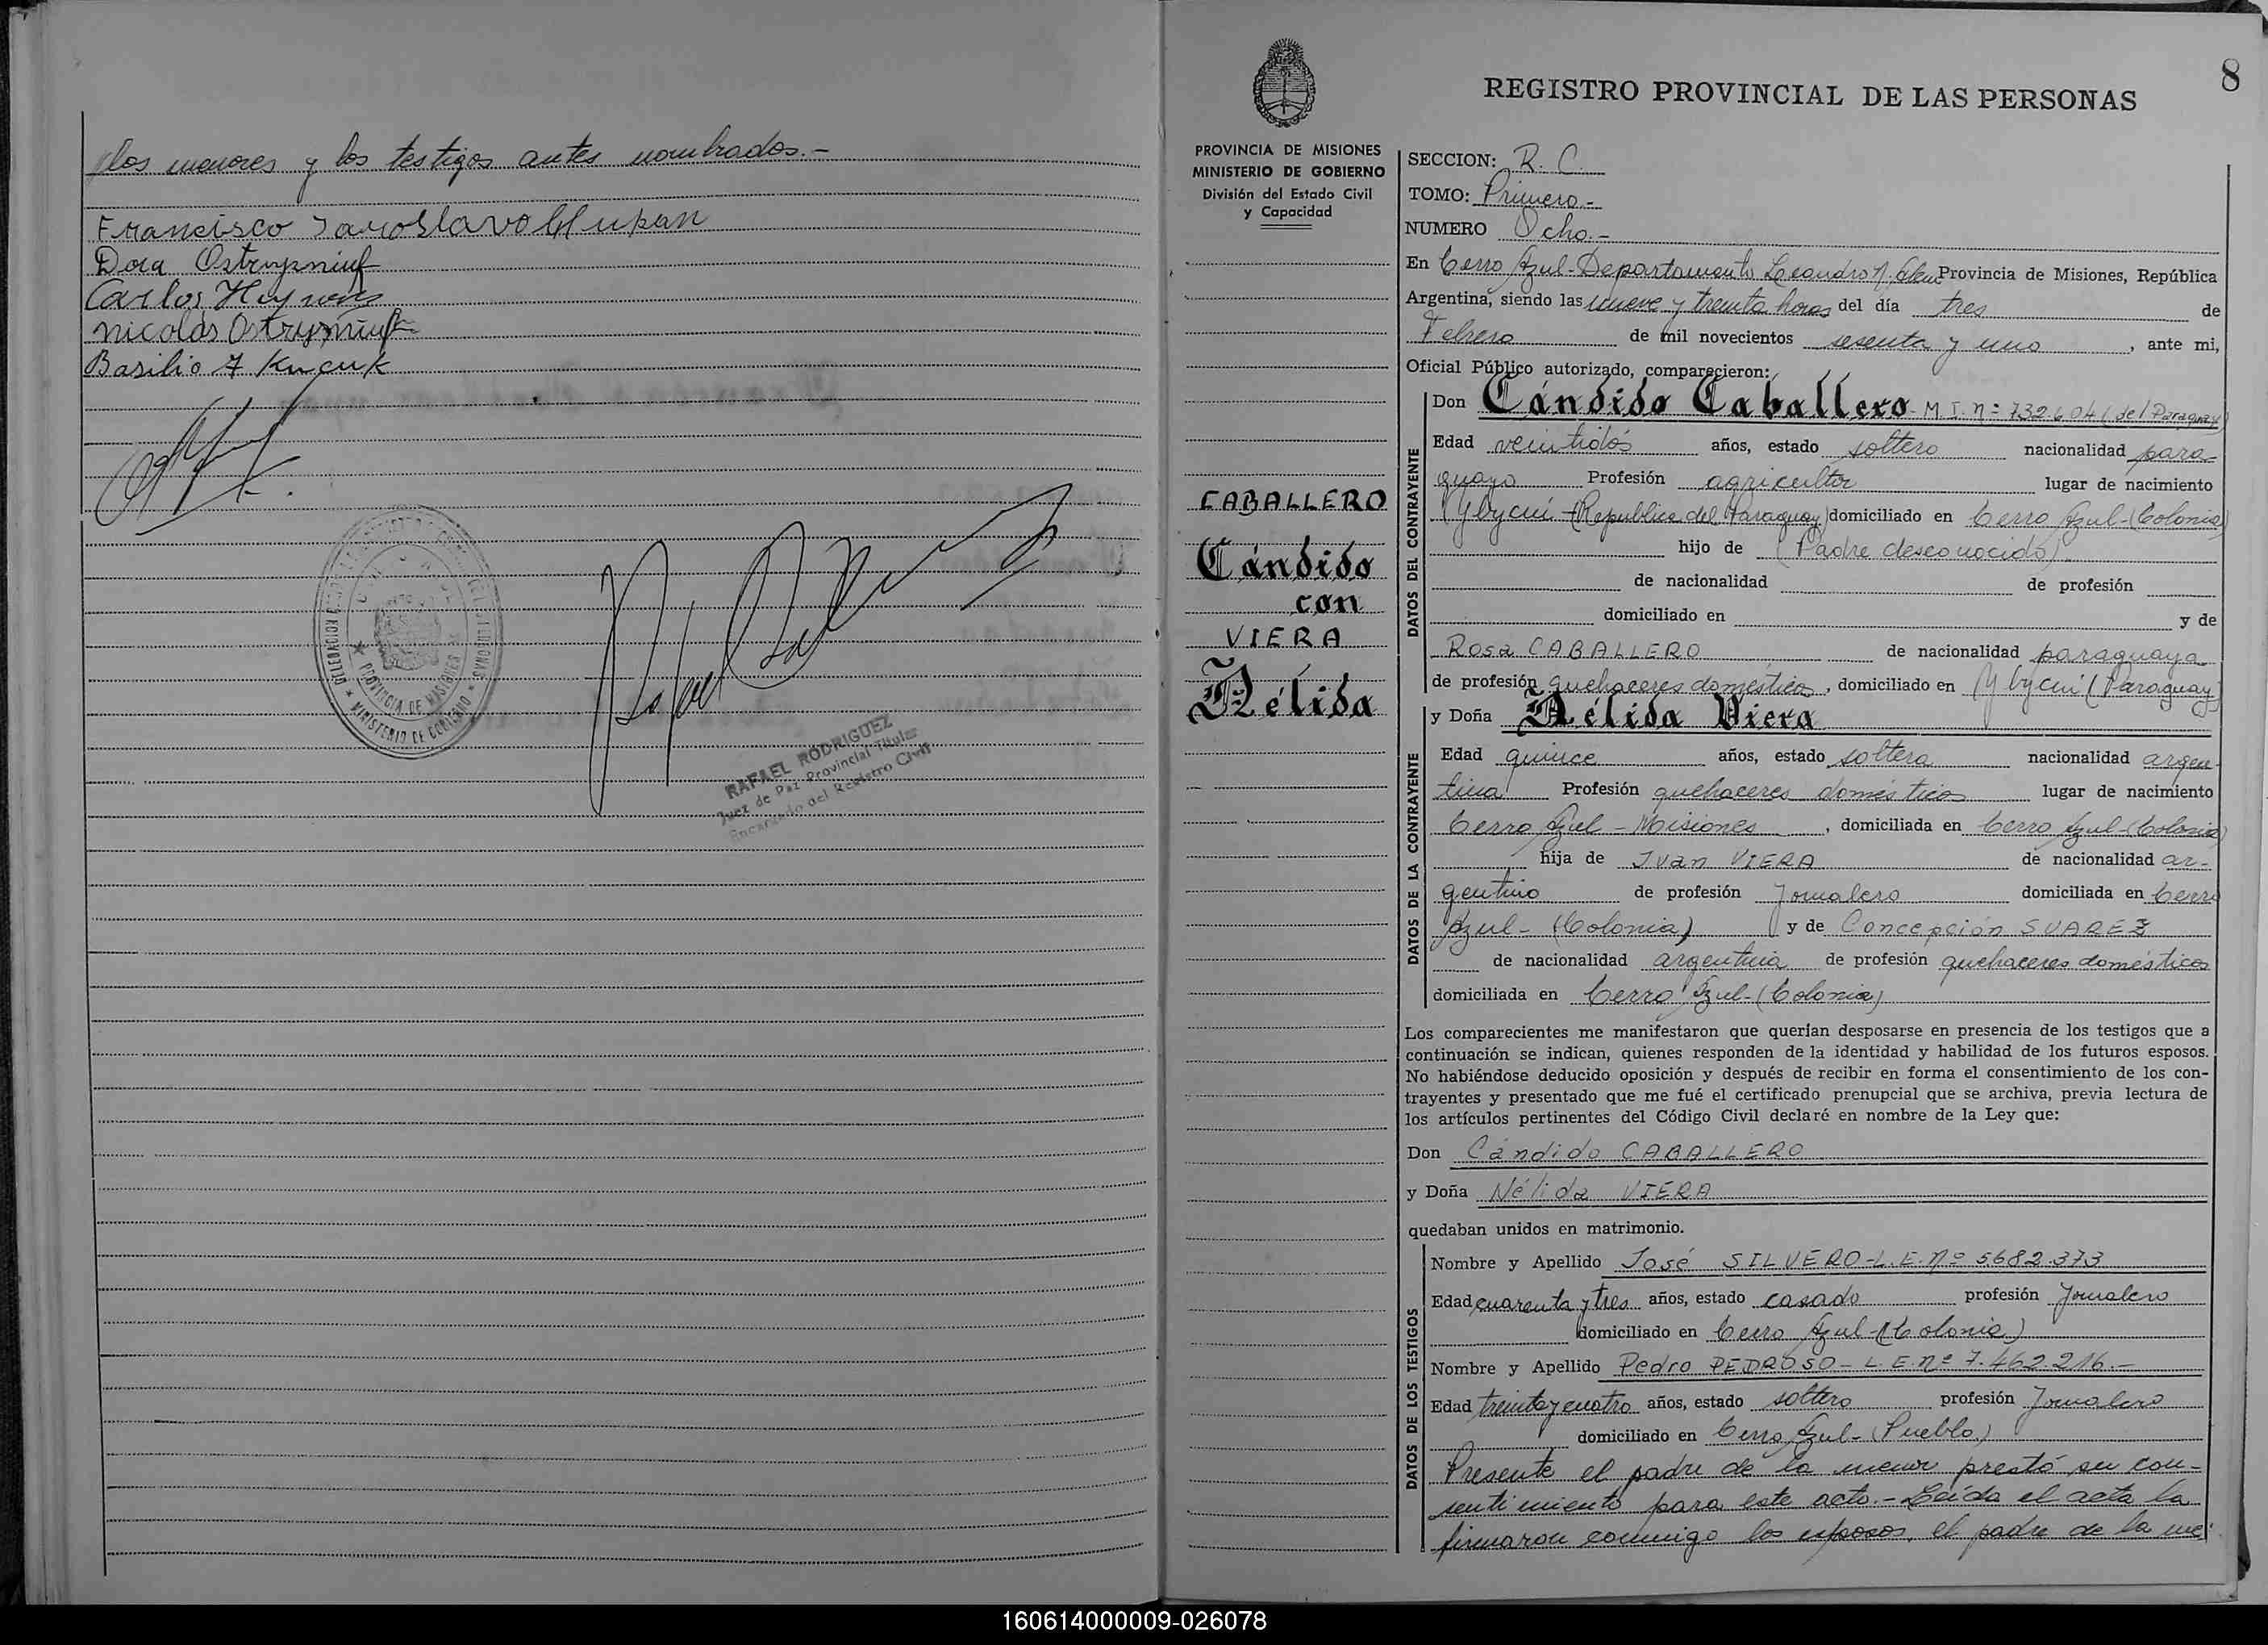 los menores y los testigos antes nombrados.-
Francisco Jaroslavo
Dora
Carlos
Nicolás
Basilio
DELEGACION
PROVINCIA DE MISIONES
MINISTERIO DE GOBIERNO
RAFAEL RODRIGUEZ
Juez de Paz Provincial Titular
Encargado del Registro Civil
8
REGISTRO PROVINCIAL DE LAS PERSONAS
PROVINCIA DE MISIONES
MINISTERIO DE GOBIERNO
División del Estado Civil
y Capacidad
CABALLERO
Cándido
con
VIERA
Nélida
SECCION: R. C.
TOMO: Primero.-
NUMERO Ocho.-
En Cerro Azul-Departamento Leandro N. Alem Provincia de Misiones, República
Argentina, siendo las nueve y treinta horas del día tres de
Febrero de mil novecientos sesenta y uno, ante mi,
Oficial Público autorizado, comparecieron:
DATOS DEL CONTRAYENTE
Don Cándido Caballero- M.I. nº 732.604 (del Paraguay)
Edad veintidós años, estado soltero nacionalidad para-
guayo Profesión agricultor lugar de nacimiento
Ybycuí-(Republica del Paraguay) domiciliado en Cerro Azul-(Colonia)
hijo de (Padre desconocido)
de nacionalidad de profesión
domiciliado en y de
Rosa CABALLERO de nacionalidad paraguaya
de profesión quehaceres domésticos, domiciliado en Ybycuí (Paraguay)
DATOS DE LA CONTRAYENTE
y Doña Nélida Viera
Edad quince años, estado soltera nacionalidad argen-
tina Profesión quehaceres domésticos lugar de nacimiento
Cerro Azul - Misiones, domiciliada en Cerro Azul-(Colonia)
hija de Juan VIERA de nacionalidad ar-
gentino de profesión Jornalero domiciliada en Cerro
Azul- (Colonia) y de Concepción SUAREZ
de nacionalidad argentina de profesión quehaceres domésticos
domiciliada en Cerro Azul-(Colonia)
Los comparecientes me manifestaron que querían desposarse en presencia de los testigos que a
continuación se indican, quienes responden de la identidad y habilidad de los futuros esposos.
No habiéndose deducido oposición y después de recibir en forma el consentimiento de los con-
trayentes y presentado que me fué el certificado prenupcial que se archiva, previa lectura de
los artículos pertinentes del Código Civil declaré en nombre de la Ley que:
Don Cándido CABALLERO
y Doña Nélida VIERA
quedaban unidos en matrimonio.
DATOS DE LOS TESTIGOS
Nombre y Apellido José SILVERO-L.E. nº 5.682.373
Edad cuarenta y tres años, estado casado profesión Jornalero
domiciliado en Cerro Azul-(Colonia)
Nombre y Apellido Pedro PEDROSO- L.E. nº 7.462.216.-
Edad treinta y cuatro años, estado soltero profesión Jornalero
domiciliado en Cerro Azul- (Pueblo)
Presente el padre de la menor prestó su con-
sentimiento para este acto.- Leída el acta la
firmaron conmigo los esposos, el padre de la me-
160614000009-026078